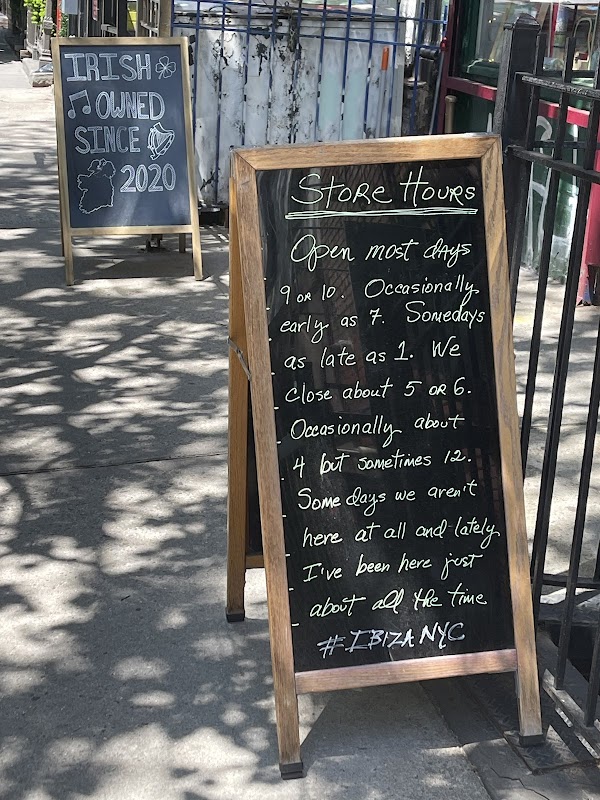 IRISH
OWNED
SINCE
2020
Store Hours
Open most days
9 or 10. Occasionally
early as 7. Somedays
as late as 1. We
close about 5 or 6.
Occasionally about
4 but sometimes 12.
Some days we aren't
here at all and lately
I've been here just
about all the time
#IBIZANYC